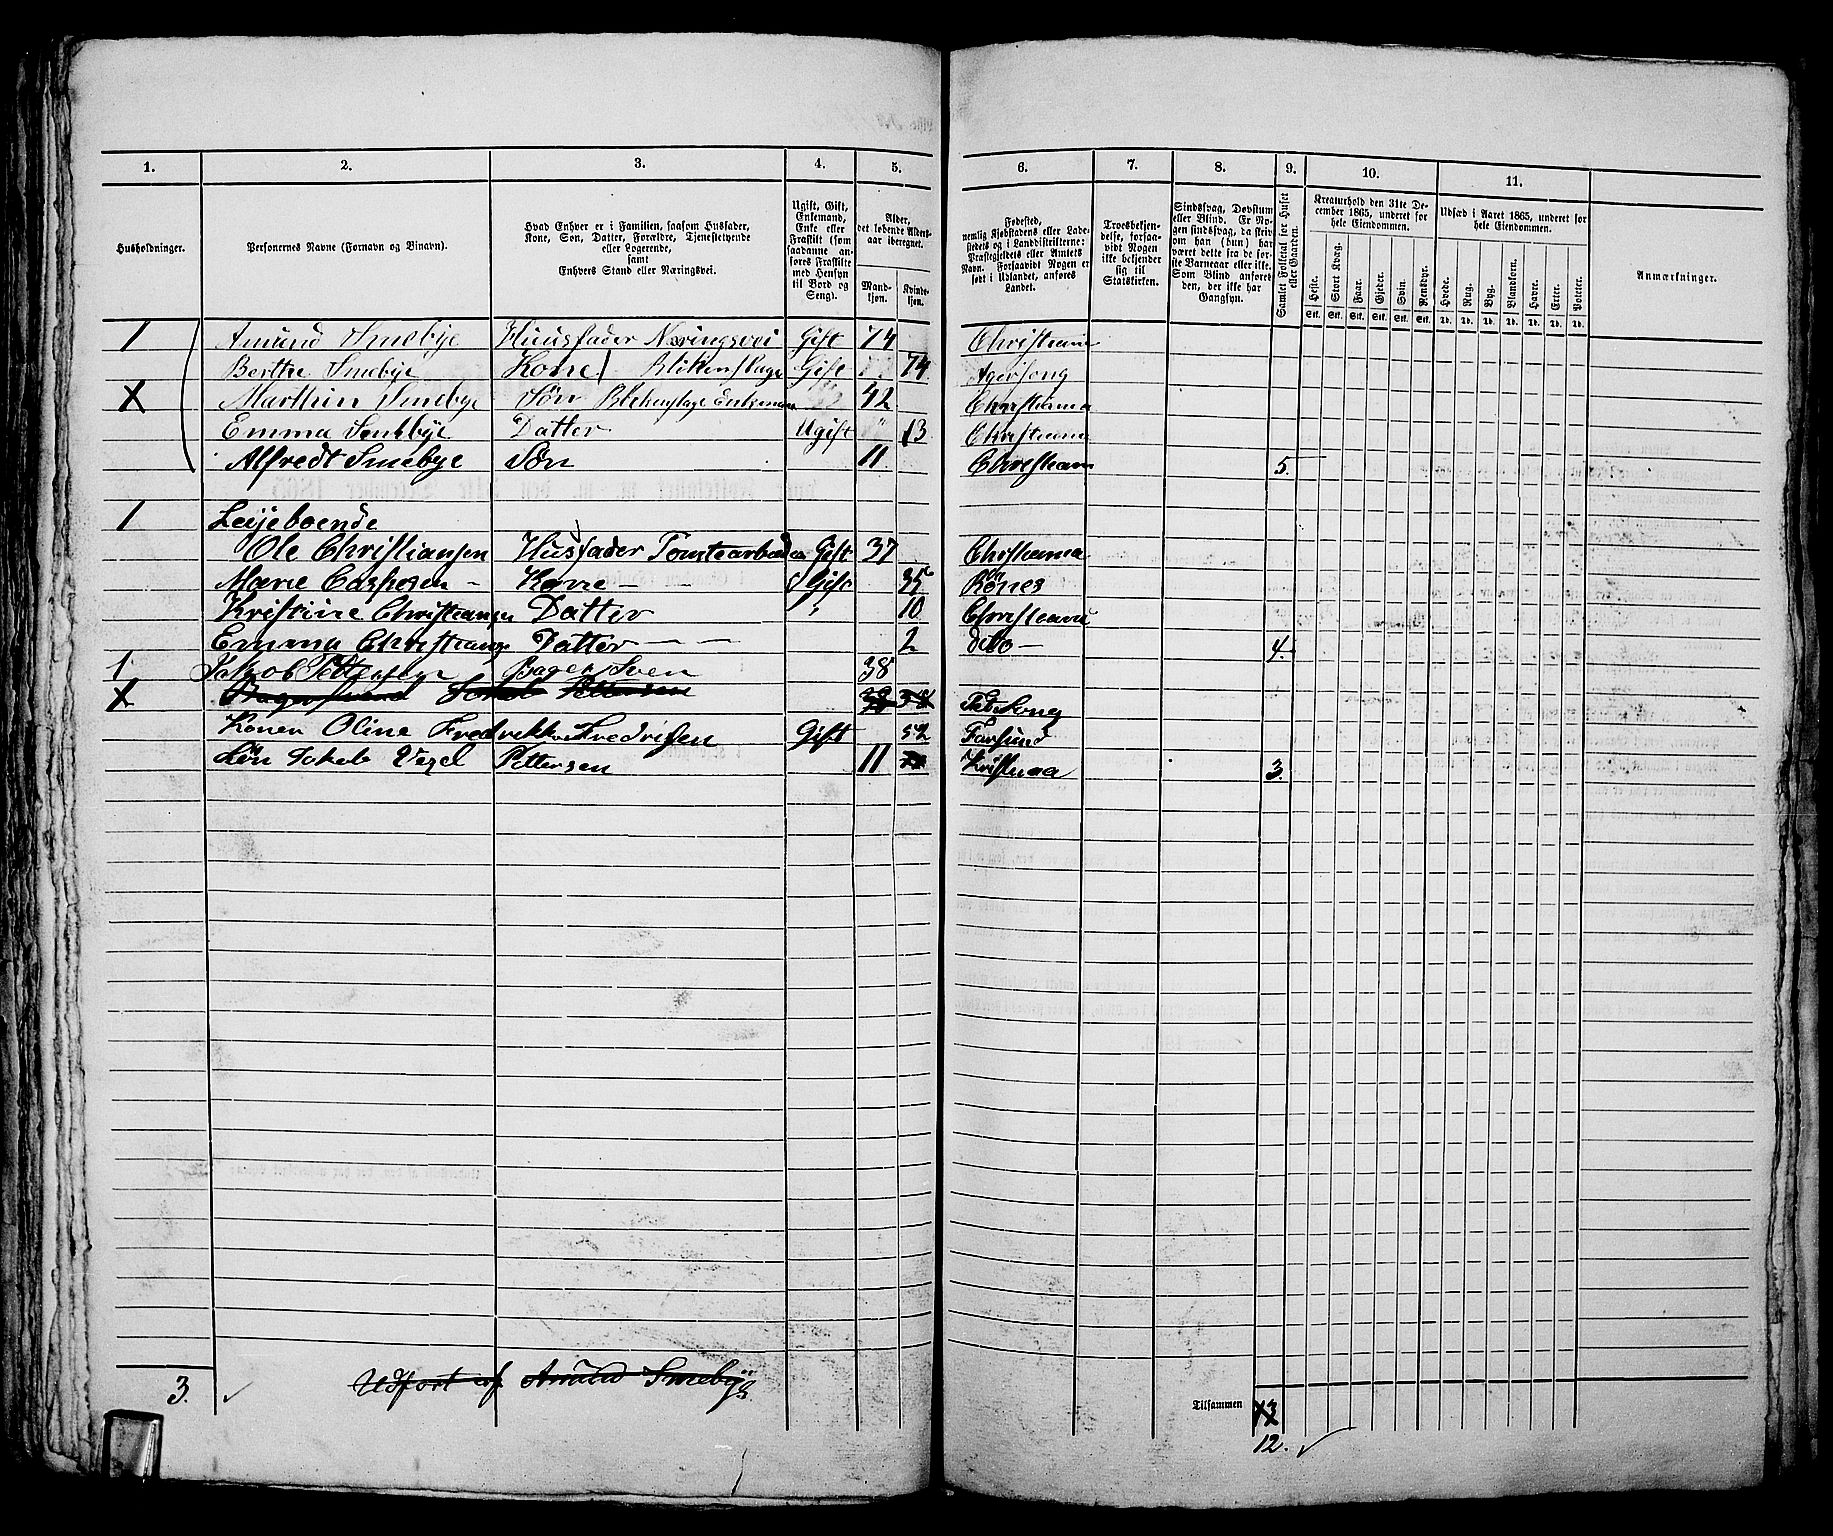 1. 2. 3. 4. 5. 6. 7. 8. 9. 10. 11.
Husholdninger.
Personernes Navne (Fornavn og Binavn).
Hvad Enhver er i Familien, saasom Husfader,
Kone, Søn, Datter, Forældre, Tjenestetyende
eller Logerende,
samt
Enhvers Stand eller Næringsvei.
Ugift, Gift,
Enkemand,
Enke eller
Fraskilt (som
saadanne an-
føres Fraskilte
med Hensyn
til Bord og
Seng).
Alder,
det løbende Alders-
aar iberegnet.
Mand-
kjøn.
Kvinde-
kjøn.
Fødested,
nemlig Kjøbstadens eller Lade-
stedets og i Landdistrikterne:
Præstegjeldets eller Amtets
Navn. Forsaavidt Nogen er
født i Udlandet, anføres
Landet.
Troesbekjen-
delse, forsaa-
vidt Nogen
ikke bekjender
sig til
Statskirken.
Sindssvag, Døvstum
eller Blind. Er No-
gen sindssvag, da skriv
om han (hun) har
været dette fra de før-
ste Barneaar eller ikke.
Som Blind anføres
den, der ikke har
Gangsyn.
Samlet Folketal for Huset
eller Gaarden.
Kreaturhold den 31te De-
cember 1865, underet for
hele Eiendommen.
Heste. Stort Kvæg. Faar. Gjeder. Svin. Rensdyr.
Stk. Stk. Stk. Stk. Stk. Stk.
Udsæd i Aaret 1865, underet for
hele Eiendommen.
Hvede. Rug. Byg. Blandkorn. Havre. Erter. Poteter.
Td. Td. Td. Td. Td. Td. Td.
Anmærkninger.
1 Amund Smebye Huusfader Næringsvei Gift 74 Christiania
Berthe Smebye Kone Blikenslage Gift 74 Agersong
X Marthin Smebye Søn Blekenslage Enkeman 42 Christiania
Emma Smebye Datter Ugift 13 Christiania
Alfredt Smebye Søn 11 Christiania 5.
1 Leijeboende
Ole Christiansen Husfader Gift 37 Christianna
Marie Caspersen - Kone - - Gift 35
Kristine Christiansen Datter " 10 Christiania
Emma Christianse Datter - - 2 dito - 4.
1 Jakob Pettersen Bager Sven 38
X Bagersvend Jakob Pettersen
Konen Oline Fredrikke Fredrisen Gift 52 Farsund
Søn Jakob Pettersen 11 Kristiania 3.
3. ✓
Udført af Amund Smebye
Tilsammen 13
12. ✓